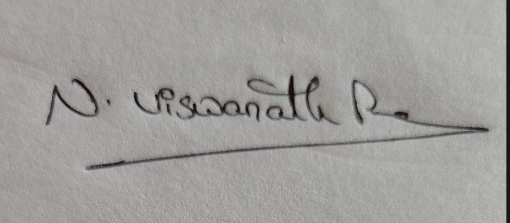 N. Viswanath